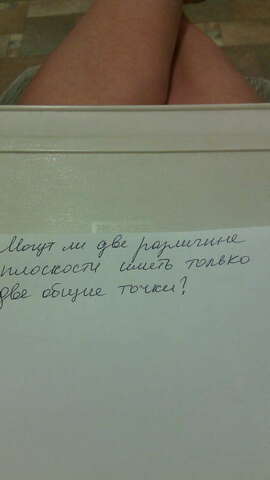 Могут ли две различные
плоскости иметь только
две общие точки?